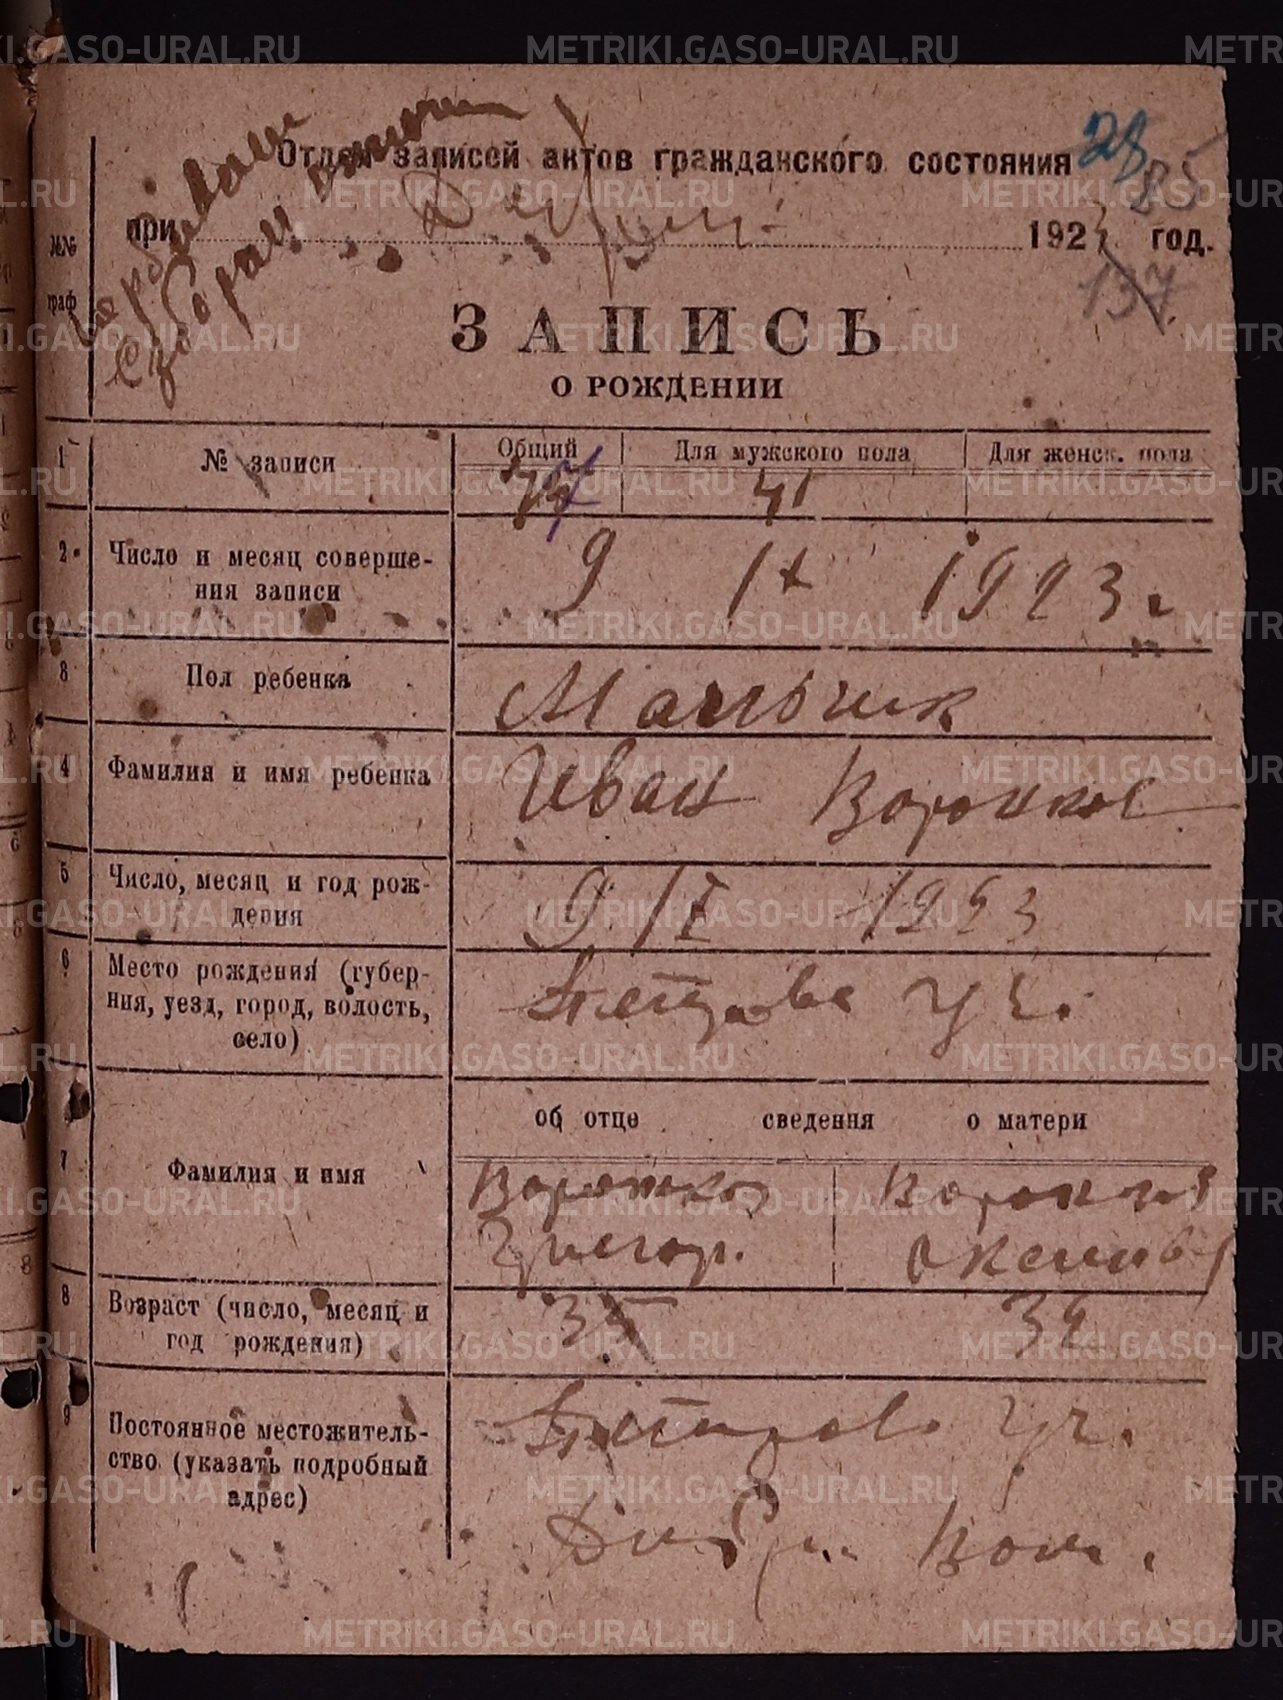 METRIKI.GASO-URAL.RU
Отдел записей актов гражданского состояния 28
85
при 1923 год.
№№ граф
137
ЗАПИСЬ
О РОЖДЕНИИ
1 № записи Общий Для мужского пола Для женск. пола
77 41
2 Число и месяц соверше-
ния записи
9 IX 1923 г
3 Пол ребенка Мальчик
4 Фамилия и имя ребенка Иван Воронков
5 Число, месяц и год рож-
дения
9 1923
6 Место рождения (губер-
ния, уезд, город, волость,
село)
уч.
об отце сведения о матери
7 Фамилия и имя
Воронков
Григор.
8 Возраст (число, месяц и
год рождения)
35 32
9 Постоянное местожитель-
ство (указать подробный
адрес)
уч.
Вол.